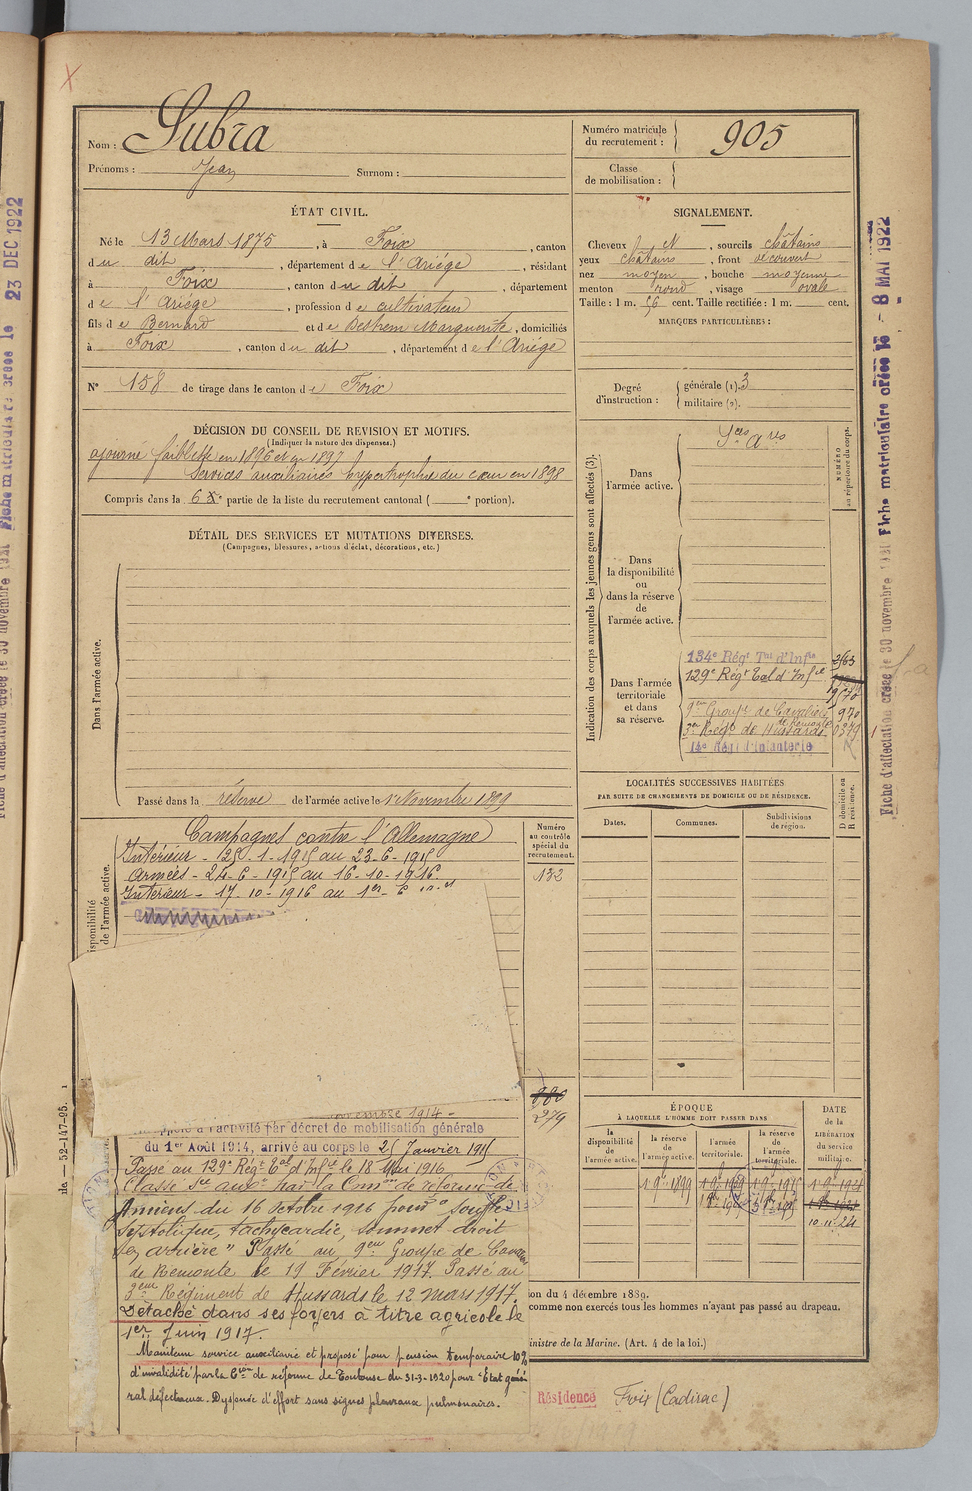 Nom : Subra
Prénoms : Jean Surnom :
Numéro matricule du recrutement : 905
Classe de mobilisation :
ÉTAT CIVIL.
Né le 13 Mars 1875, à Foix, canton
du dit, département de l'Ariége, résidant
à Foix, canton du dit, département
de l'Ariége, profession de cultivateur
fils de Bernard et de Destrem Marguerite, domiciliés
à Foix, canton du dit, département de l'Ariége
N° 158 de tirage dans le canton de Foix
SIGNALEMENT.
Cheveux N, sourcils châtains
yeux châtains, front découvert
nez moyen, bouche moyenne
menton rond, visage ovale
Taille : 1 m. 56 cent. Taille rectifiée : 1 m. cent.
MARQUES PARTICULIÈRES :
Degré d'instruction : générale (1). 3
militaire (2).
DÉCISION DU CONSEIL DE REVISION ET MOTIFS.
(Indiquer la nature des dispenses.)
ajourné faiblesse en 1896 et en 1897
Services auxiliaires hypertrophie du cœur en 1898
Compris dans la 6e partie de la liste du recrutement cantonal ( e portion).
DÉTAIL DES SERVICES ET MUTATIONS DIVERSES.
(Campagnes, blessures, actions d'éclat, décorations, etc.)
Dans l'armée active.
Passé dans la réserve de l'armée active le 1er Novembre 1899
Indication des corps auxquels les jeunes gens sont affectés (3).
NUMÉRO au répertoire du corps.
Dans l'armée active. Sces Ares
Dans la disponibilité ou dans la réserve de l'armée active.
Dans l'armée territoriale et dans sa réserve.
134e Régt Tal d'Infie
129e Régt Eal d'Infie
9em Groupe de Cavaliers de Remonte 970
3em Regt de Hussards
14e Régt d'Infanterie
LOCALITÉS SUCCESSIVES HABITÉES
PAR SUITE DE CHANGEMENTS DE DOMICILE OU DE RÉSIDENCE.
D domicile ou R résidence.
Dates. Communes. Subdivisions de région.
Numéro au contrôle spécial du recrutement.
132
980
279
isponibilité de l'armée active.
Campagnes contre l'Allemagne
Intérieur - 25-1-1915 au 23-6-1915
Armées - 24-6-1915 au 16-10-1916
Intérieur - 17-10-1916 au 1er-6
ovembre 1914 -
à l'activité par décret de mobilisation générale
du 1er Août 1914, arrivé au corps le 25 Janvier 1915
Passé au 129e Régt Eal d'Infie le 18 Mai 1916
Classé Sce auxre par la Comon de réforme de
Amiens du 16 octobre 1916 pour "souffle
systolique, tachycardie, sommet droit
en arrière" Passé au 9em Groupe de Cavaliers
de Remonte le 19 Février 1917. Passé au
3eme Régiment de Hussards le 12 mars 1917.
Détaché dans ses foyers à titre agricole le
1er Juin 1917.
Maintenu service auxiliaire et proposé pour pension temporaire 10%
d'invalidité par la Con de réforme de Toulouse du 31-3-1920 pour "Etat géné
ral défectueux. Dyspnée d'effort sans signes pleuraux pulmonaires.
ÉPOQUE
À LAQUELLE L'HOMME DOIT PASSER DANS
la disponibilité de l'armée active.
la réserve de l'armée active.
l'armée territoriale.
la réserve de l'armée territoriale.
DATE de la LIBÉRATION du service militaire.
1 9bre 1899
10.11.24
ion du 4 décembre 1889.
comme non exercés tous les hommes n'ayant pas passé au drapeau.
inistre de la Marine. (Art. 4 de la loi.)
Résidence Foix (Cadirac)
de — 52-147-95.
Fiche matriculaire créée le 23 DEC 1922
Fiche d'affectation créée le 30 novembre 1921
Fiche matriculaire créée le - 8 MAI 1922
Fiche d'affectation créée le 30 novembre 1921